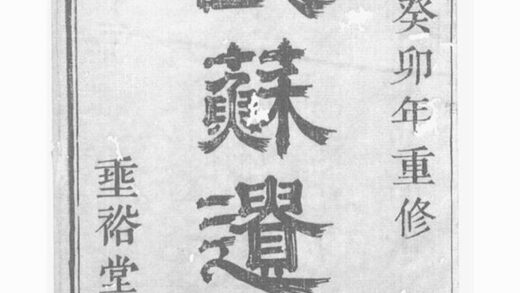 癸卯年重修
蘇遺
埀裕堂